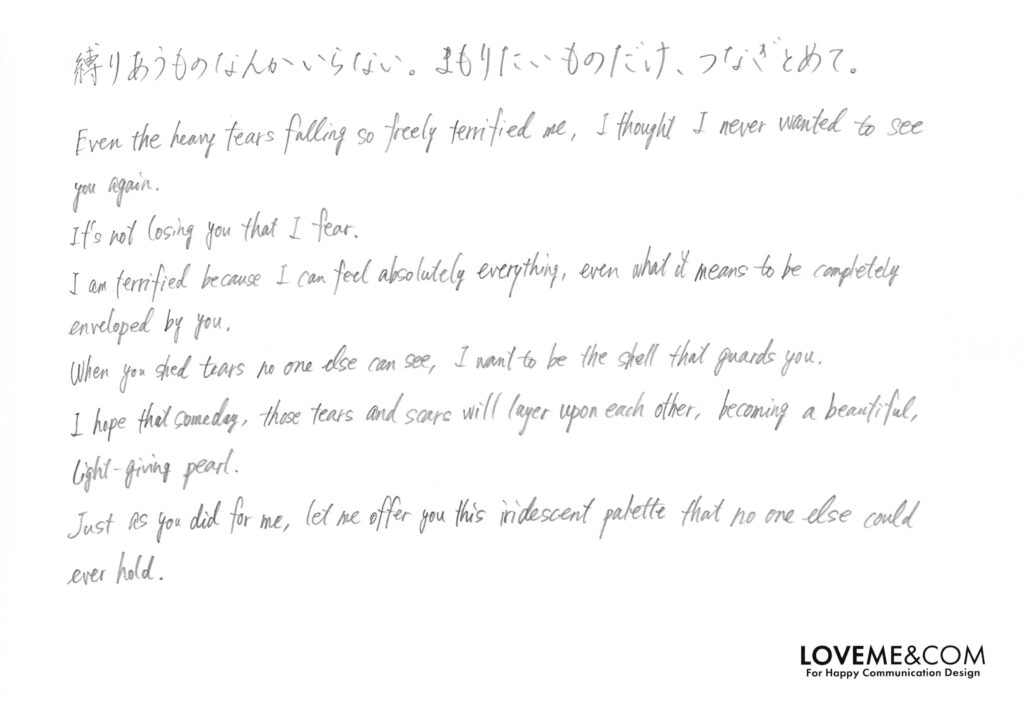 縛りあうものなんかいらない。まもりたいものだけ、つなぎとめて。
Even the heavy tears falling so freely terrified me, I thought I never wanted to see
you again.
It's not losing you that I fear.
I am terrified because I can feel absolutely everything, even what it means to be completely
enveloped by you.
When you shed tears no one else can see, I want to be the shell that guards you.
I hope that someday, those tears and scars will layer upon each other, becoming a beautiful,
light-giving pearl.
Just as you did for me, let me offer you this iridescent palette that no one else could
ever hold.
LOVEME&COM
For Happy Communication Design